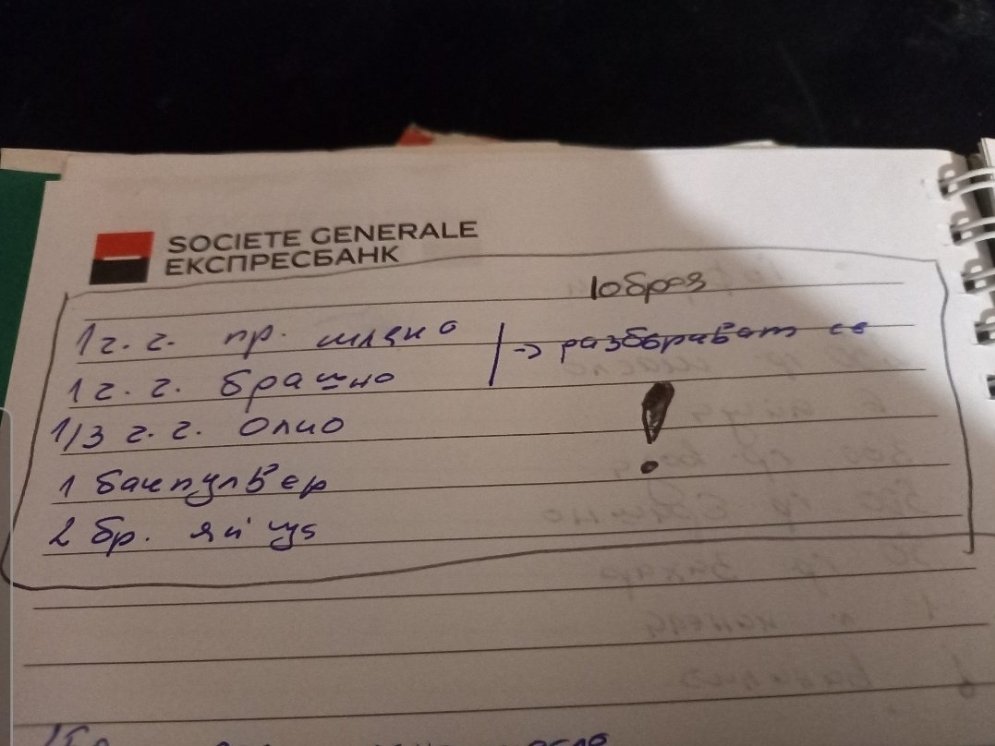 SOCIETE GENERALE
ЕКСПРЕСБАНК
1 ч. ч. пр. мляко
-> разбъркват се
1 ч. ч. брашно
1/3 ч. ч. Олио
!
1 бакпулвер
2 бр. яйца